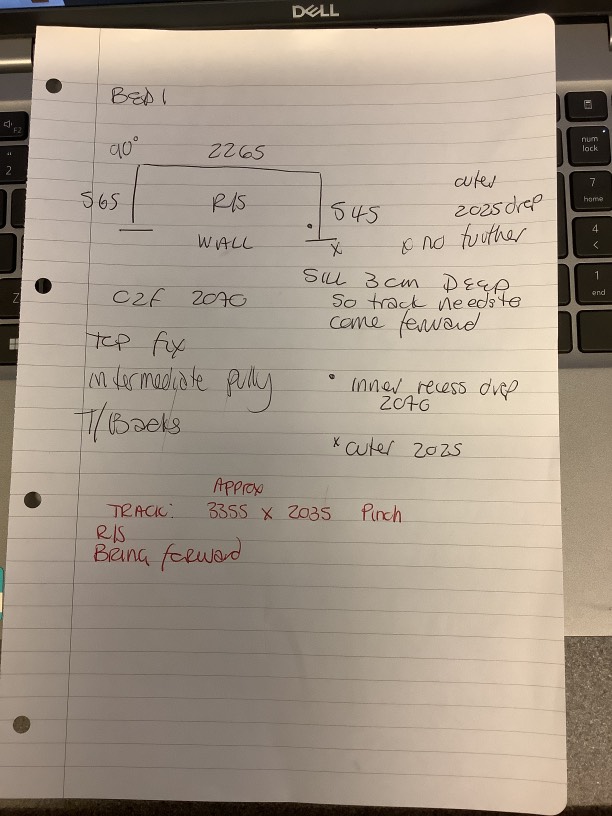 DELL
BED 1
90° 2265
565 R/S 545
WALL x
outer
2025 drop
no further
Sill 3cm DEEP
so track needs to
come forward
C2F 2070
TOP fix
intermediate pully
T/Backs
• inner recess drop
2070
x outer 2025
Approx
TRACK: 3355 x 2035 Pinch
R/S
Bring forward
F2
"
2
Z
num
lock
7
home
4
<
1
end